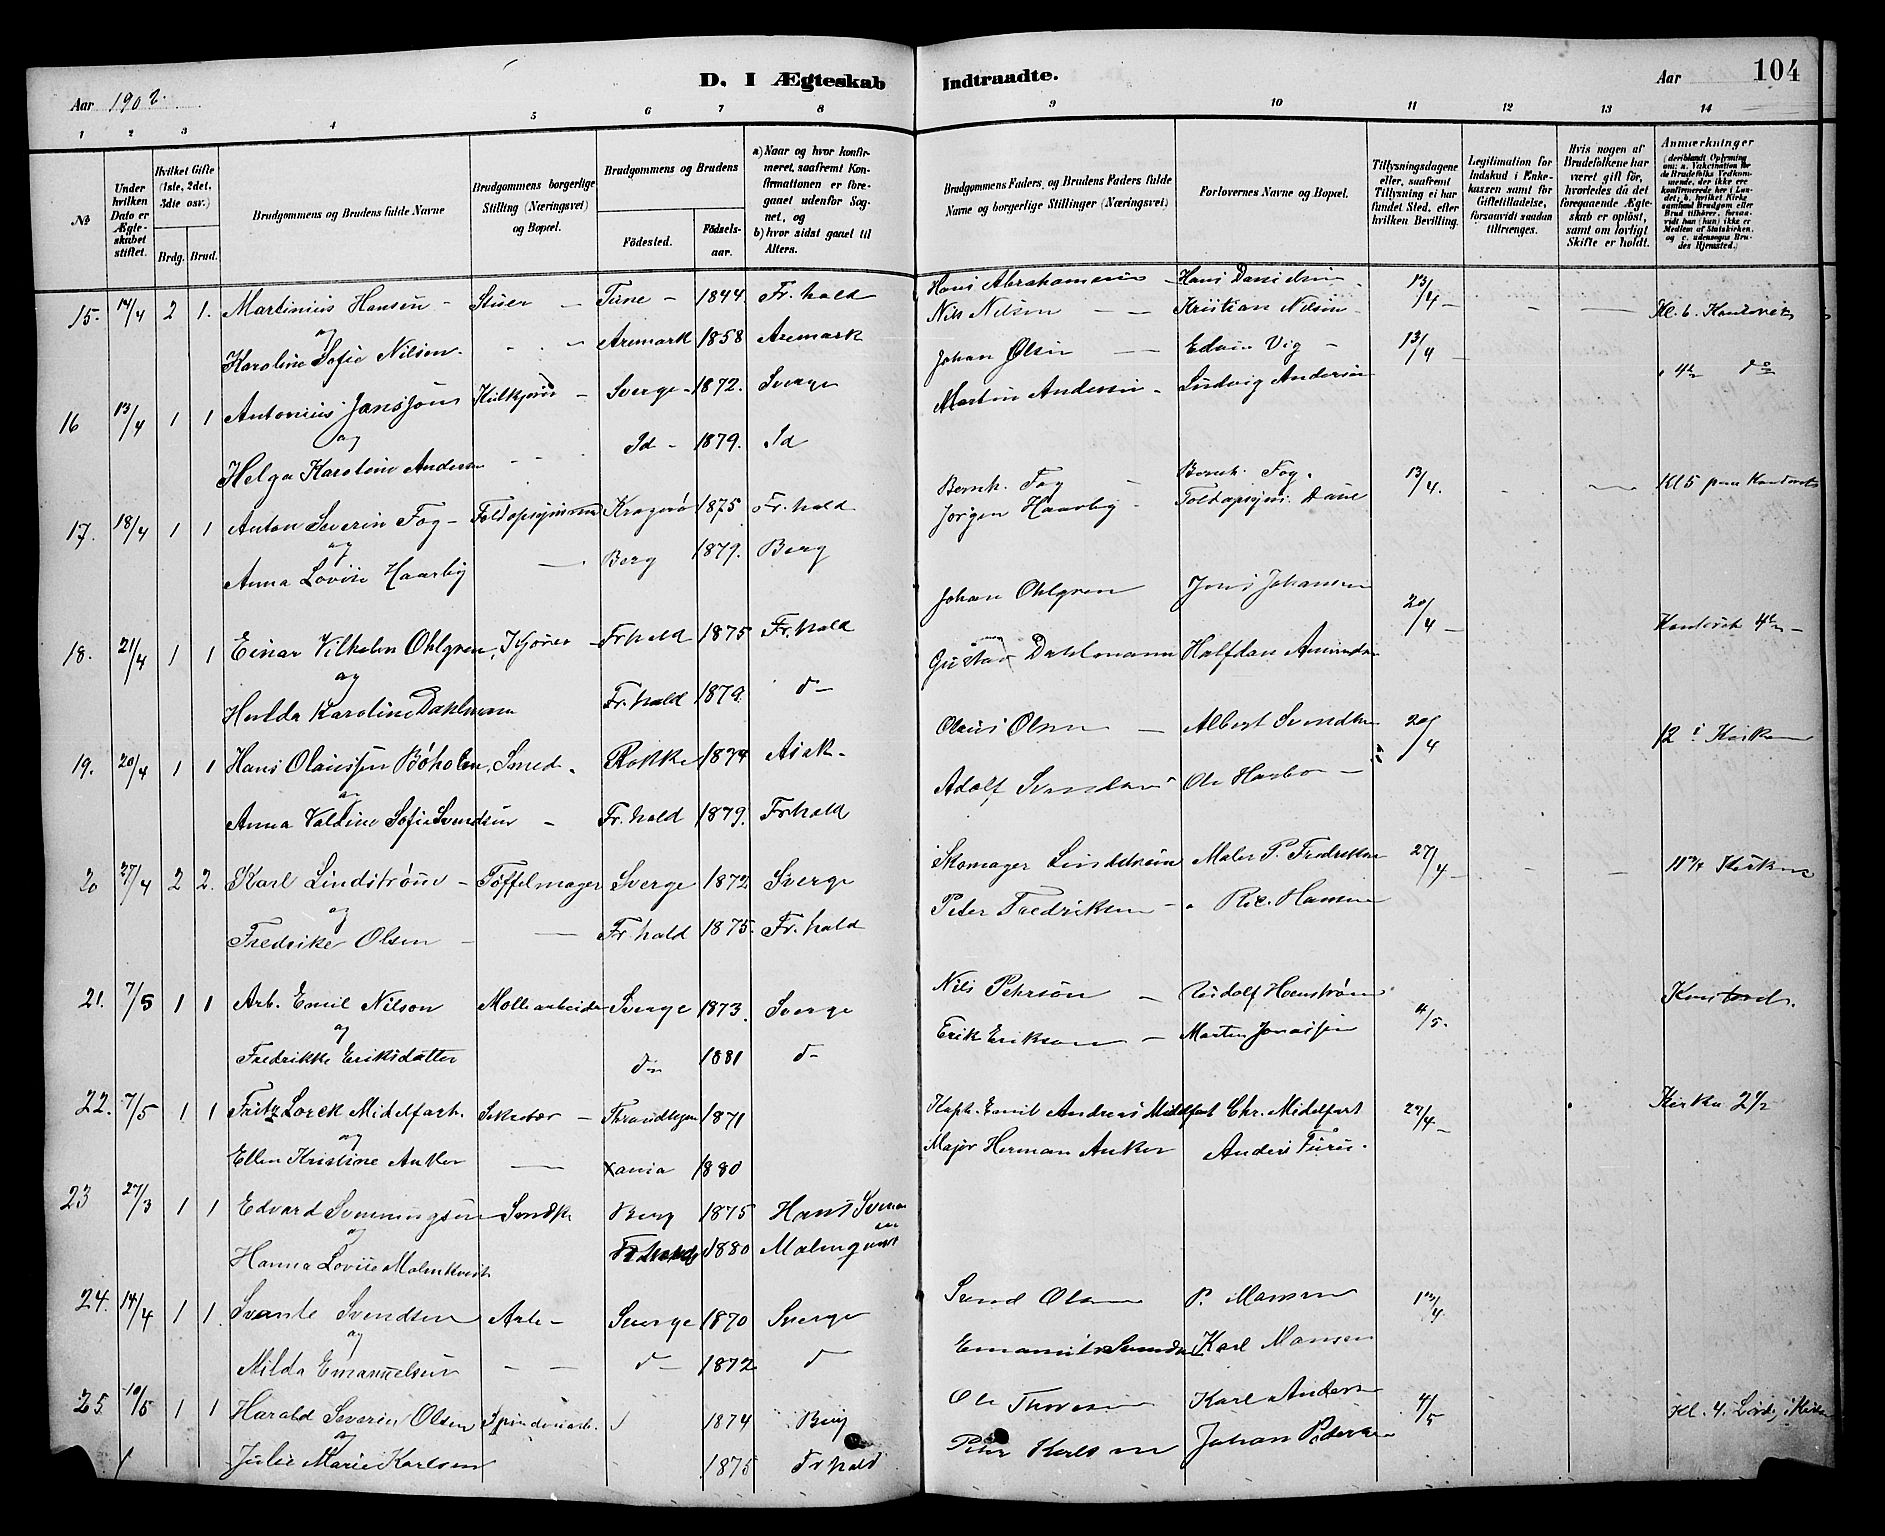 D. I Ægteskab Indtraadte.
Aar 1902.
Aar 104
1 2 3 4 5 6 7 8 9 10 11 12 13 14
№
Under hvilken Dato er Ægteskabet stiftet.
Hvilket Gifte (1ste, 2det, 3die osv.)
Brdg. Brud.
Brudgommens og Brudens fulde Navne
Brudgommens borgerlige Stilling (Næringsvei) og Bopæl.
Brudgommens og Brudens
Födested. Födselsaar.
a) Naar og hvor konfirmeret, saafremt Konfirmationen er foregaaet udenfor Sognet, og
b) hvor sidst gaaet til Alters.
Brudgommens Faders, og Brudens Faders fulde Navne og borgerlige Stillinger (Næringsvei)
Forlovernes Navne og Bopæl.
Tillysningsdagene eller, saafremt Tillysning ei har fundet Sted, efter hvilken Bevilling.
Legitimation for Indskud i Enkekassen samt for Giftetilladelse, forsaavidt saadan tiltrænges.
Hvis nogen af Brudefolkene har været gift för, hvorledes da det foregaaende Ægteskab er oplöst, samt om lovligt Skifte er holdt.
Anmærkninger
(deriblandt Oplysning om: a. Vakcination for de Brudefolks Vedkommende, der ikke ere konfirmerede her i Landet; b. hvilket Kirkesamfund Brudgom eller Brud tilhörer, forsaavidt han (hun) ikke er Medlem af Statskirken, og c. udensogns Brudes Hjemsted.)
15. 14/4 2 1. Martinius Hansen - Stuer - Tune - 1844. Fr.hald Hans Abrahamsen Hans Danielsen 13/4 - Kl. 6
og
Karoline Sofie Nilsen. Aremark 1858 Aremark Nils Nilsen Kristian Nilsen
16 13/4 1 1 Antonius Jansson Kulkjører - Sverge - 1872. Sverge Johan Olsen Edvin Vig - 13/4 - 4½ do
og
Helga Karoline Andersen Id - 1879. Id Martin Andersen - Ludvig Andersen
17. 18/4 1 1 Anton Severin Fog - Toldopsynsm Kragerø 1875 Fr.hald Bernh. Fog Bernh. Fog. 13/4. Kl 5
og
Anna Lovise Haarby Berg 1879. Berg Jørgen Haarby - Toldopsynsm.
18. 21/4 1 1 Einar Vilhelm Ohlgren, Kjører - Fr.hald 1875 Fr.hald Johan Ohlgren Jens Johansen 20/4 -
og
Hulda Karoline Dahlmann Fr.hald 1879. d- Gustav Dahlmann Halfdan
19. 20/4 1 1 Hans Olaussen Bøholm, Smed - Rokke 1874 Asak - Olaus Olsen - Albert Svendsen 20/4 12 i Kirken
og
Anna Valdine Sofie Svendsen - Fr.hald 1879. Fr.hald Adolf Svendsen Ole
20 27/4 2 2. Karl Lindstrøm - Tøffelmager Sverge 1872 Sverge Skomager Lindstrøm Maler P. Fredriksen 27/4 - Kirken
og
Fredrike Olsen - Fr.hald 1875. Fr.hald Peter Fredriksen - Hansen
21. 7/5 1 1 Arb. Emil Nilson Møllearbeider Sverge 1873. Sverge Nils Pehrson - Rudolf 4/5.
og
Fredrikke Eriksdatter d- 1881 d- Erik Erikson - Martin Jonassen
22. 7/5 1 1 Fritz Lorck Midelfart. Sekretær - Throndhjem 1871 Kapt. Emil Andreas Midelfart Chr. Midelfart 27/4 - Kirken 2½
og
Ellen Kristine Anker Xania 1880 Major Herman Anker Anders Furu.
23 27/3 1 1 Edvard Svenningsen Berg 1875 Hans
og
Hanna Lovise Malmkvist Fr.hald 1880
24. 14/4 1 1. Svante Svendsen Arb - Sverge 1870 Sverge Svend Olsen P. Mansen 13/4.
og
Milda Emanuelsen - - d- 1872 d Karl Mansen
25. 10/5 1 1 Harald Severin Olsen 1874 Berg Ole Karl Andersen 4/5
og
Julie Marie Karlsen 1875 Fr.hald Peter Karlsen Johan Pedersen